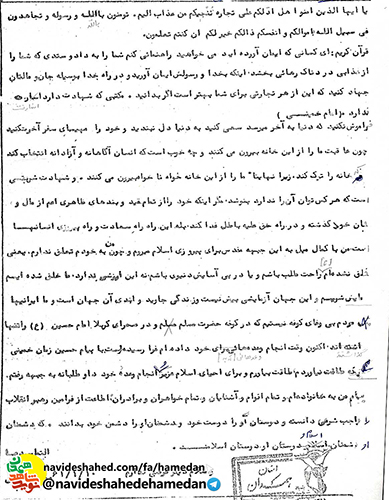 یا ایها الذین امنوا هل ادلکم علی تجاره تنجیکم من عذاب الیم . تومنون باالله و رسوله و تجاهدون
فی سبیل الله باموالکم و انفسکم ذالکم خیر لکم ان کنتم تعلمون.
قرآن کریم: ای کسانی که ایمان آورده اید می خواهید راهنمائی کنم شما را به داد و ستدی که شما را
از عذابی دردناک رهائی بخشد: اینکه بخدا و رسولش ایمان آورید و در راه خدا بوسیله جان و مالتان
جهاد کنید که این از هر تجارتی برای شما بهتر است اگر بدانید * مکتبی که شهادت دارد اسارت
ندارد (امام خمینی)
فراموش نکنید که دنیا به آخر میرسد سعی کنید به دنیا دل نبندید و خود را مهیای سفر آخرت کنید
چون عاقبت ما را از این خانه بیرون می کنند و چه خوب است که انسان آگاهانه و آزادانه انتخاب کند
خانه را ترک کند، زیرا نهایتا ما را از این خانه خواه نا خواه بیرون می کنند * و شهادت شربتی
است که هر کس توان آن را ندارد بنوشد، مگر اینکه خود را از تمام قید و بندهای ظاهری اعم از مال و
جان خود گذشته و در راه حق علیه باطل فدا کند، بله این راه راه سعادت و راه پیروزی انسانهسا
است من با کمال میل به این جبهه مقدس برای پیروزی اسلام میروم و چون به خودم تعلق ندارم، یعنی
خلق نشده ام راحت طلب باشم و یا در پی آسایش دنیوی باشم نه این ارزشی ندارد، ما خلق شده ایم
و این جهان آزمایشی بیش نیست و زندگی جاوید و ابدی آن جهان است و ما ایرانیها
مردم بی وفای کوفه نیستیم که در کوفه حضرت مسلم و در صحرای کربلا امام حسین (ع) را تنها
گذاشته اند، اکنون وقت انجام وعده هائی برای خود داده ام فرا رسیده است با پیام حسین زمان خمینی
طاقت نیاوردم و برای احیای اسلام عزیز و انجام وعده خود داوطلبانه به جبهه رفتم.
پیام من به خانواده ام و تمام اقوام و آشنایان و تمام خواهران و برادران: اطاعت از فرامین رهبر انقلاب
را واجب شرعی دانسته و دوستان او را دوست خود و دشمنان او را دشمن خود بدانند * که دشمنان
او دشمنان اسلام و دوستان او دوستان اسلامنسست *
navideshahed.com/fa/hamedan
@navideshahedehamedan